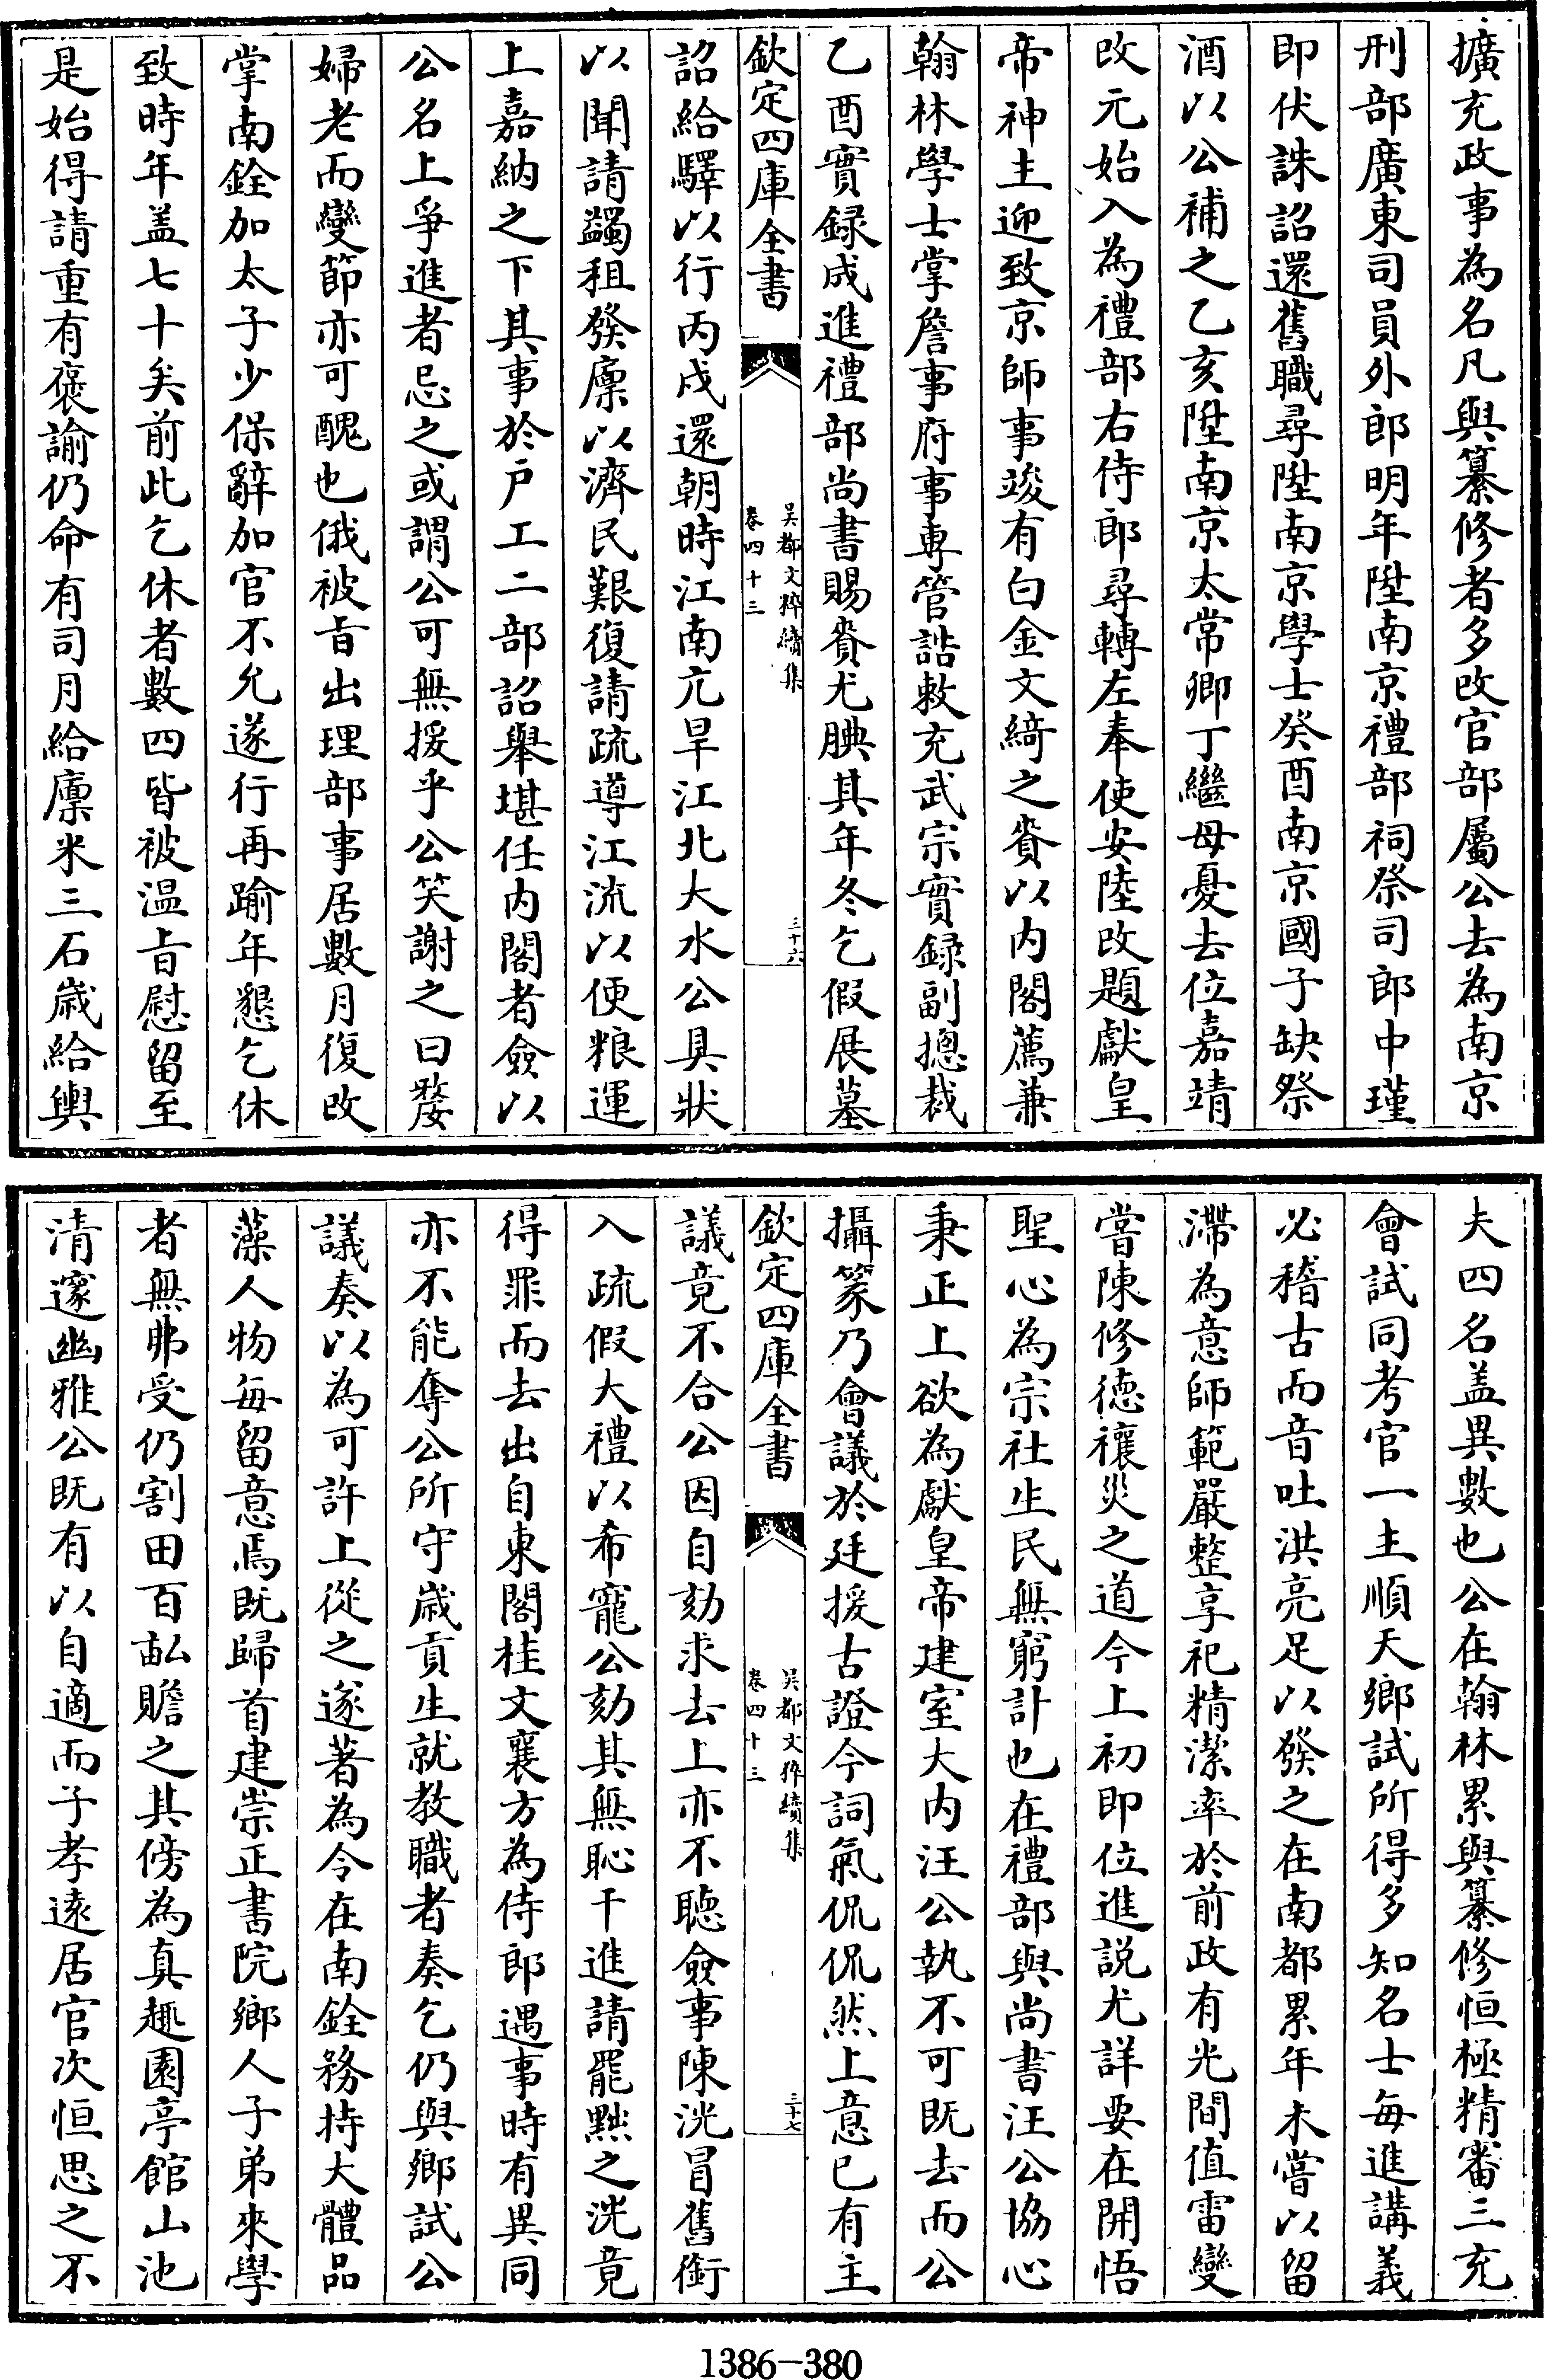 擴充政事為名凡與纂修者多改官部屬公去為南京
刑部廣東司員外郎明年陞南京禮部祠祭司郎中瑾
即伏誅詔還舊職尋陞南京學士癸酉南京國子缺祭
酒以公補之乙亥陞南京太常卿丁繼母憂去位嘉靖
改元始入為禮部右侍郎尋轉左奉使安陸改題獻皇
帝神主迎致京師事竣有白金文綺之賚以内閣薦兼
翰林學士掌詹事府事專管誥敕充武宗實録副摠裁
乙酉實録成進禮部尚書賜賚尤腆其年冬乞假展墓
欽定四庫全書
吳都文粹續集
卷四十三
三十六
詔給驛以行丙戌還朝時江南亢旱江北大水公具狀
以聞請蠲租發廩以濟民艱復請疏導江流以便粮運
上嘉納之下其事於户工二部詔舉堪任内閣者僉以
公名上爭進者忌之或謂公可無援乎公笑謝之曰嫠
婦老而變節亦可醜也俄被旨出理部事居數月復改
掌南銓加太子少保辭加官不允遂行再踰年懇乞休
致時年盖七十矣前此乞休者數四皆被温旨慰留至
是始得請重有褒諭仍命有司月給廩米三石歲給輿
夫四名盖異數也公在翰林累與纂修恒極精審三充
會試同考官一主順天鄉試所得多知名士每進講義
必稽古而音吐洪亮足以發之在南都累年未嘗以留
滯為意師範嚴整享祀精潔率於前政有光間值雷變
嘗陳修德禳災之道今上初即位進説尤詳要在開悟
聖心為宗社生民無窮計也在禮部與尚書汪公協心
秉正上欲為獻皇帝建室大内汪公執不可既去而公
攝篆乃會議於廷援古證今詞氣侃侃然上意已有主
欽定四庫全書
吳都文粹續集
卷四十三
三十七
議竟不合公因自劾求去上亦不聽僉事陳洸冒舊銜
入疏假大禮以希寵公劾其無恥干進請罷黜之洸竟
得罪而去出自東閣桂文襄方為侍郎遇事時有異同
亦不能奪公所守歲貢生就教職者奏乞仍與鄉試公
議奏以為可許上從之遂著為令在南銓務持大體品
藻人物每留意焉既歸首建崇正書院鄉人子弟來學
者無弗受仍割田百畝贍之其傍為真趣園亭館山池
清邃幽雅公既有以自適而子孝遠居官次恒思之不
1386-380